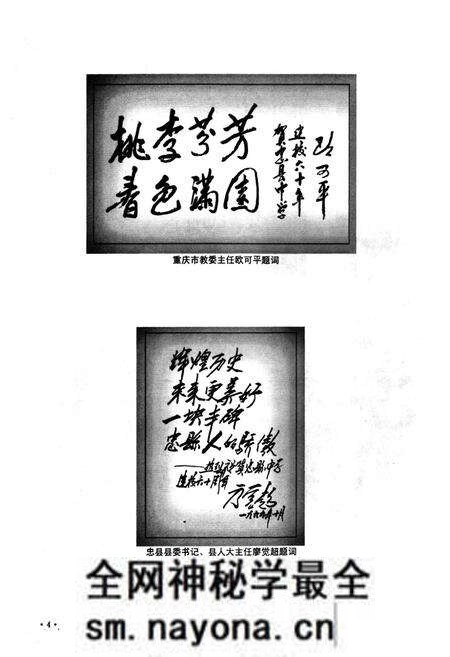 桃李芬芳
春色满園
贺忠县中学
建校六十年
欧可平
重庆市教委主任欧可平题词
辉煌历史
未来更美好
一块丰碑
忠县人的骄傲
——热烈祝贺忠县中学
建校六十周年
廖觉超
一九九九年十月
忠县县委书记、县人大主任廖觉超题词
全网神秘学最全
·4·
sm.nayona.cn